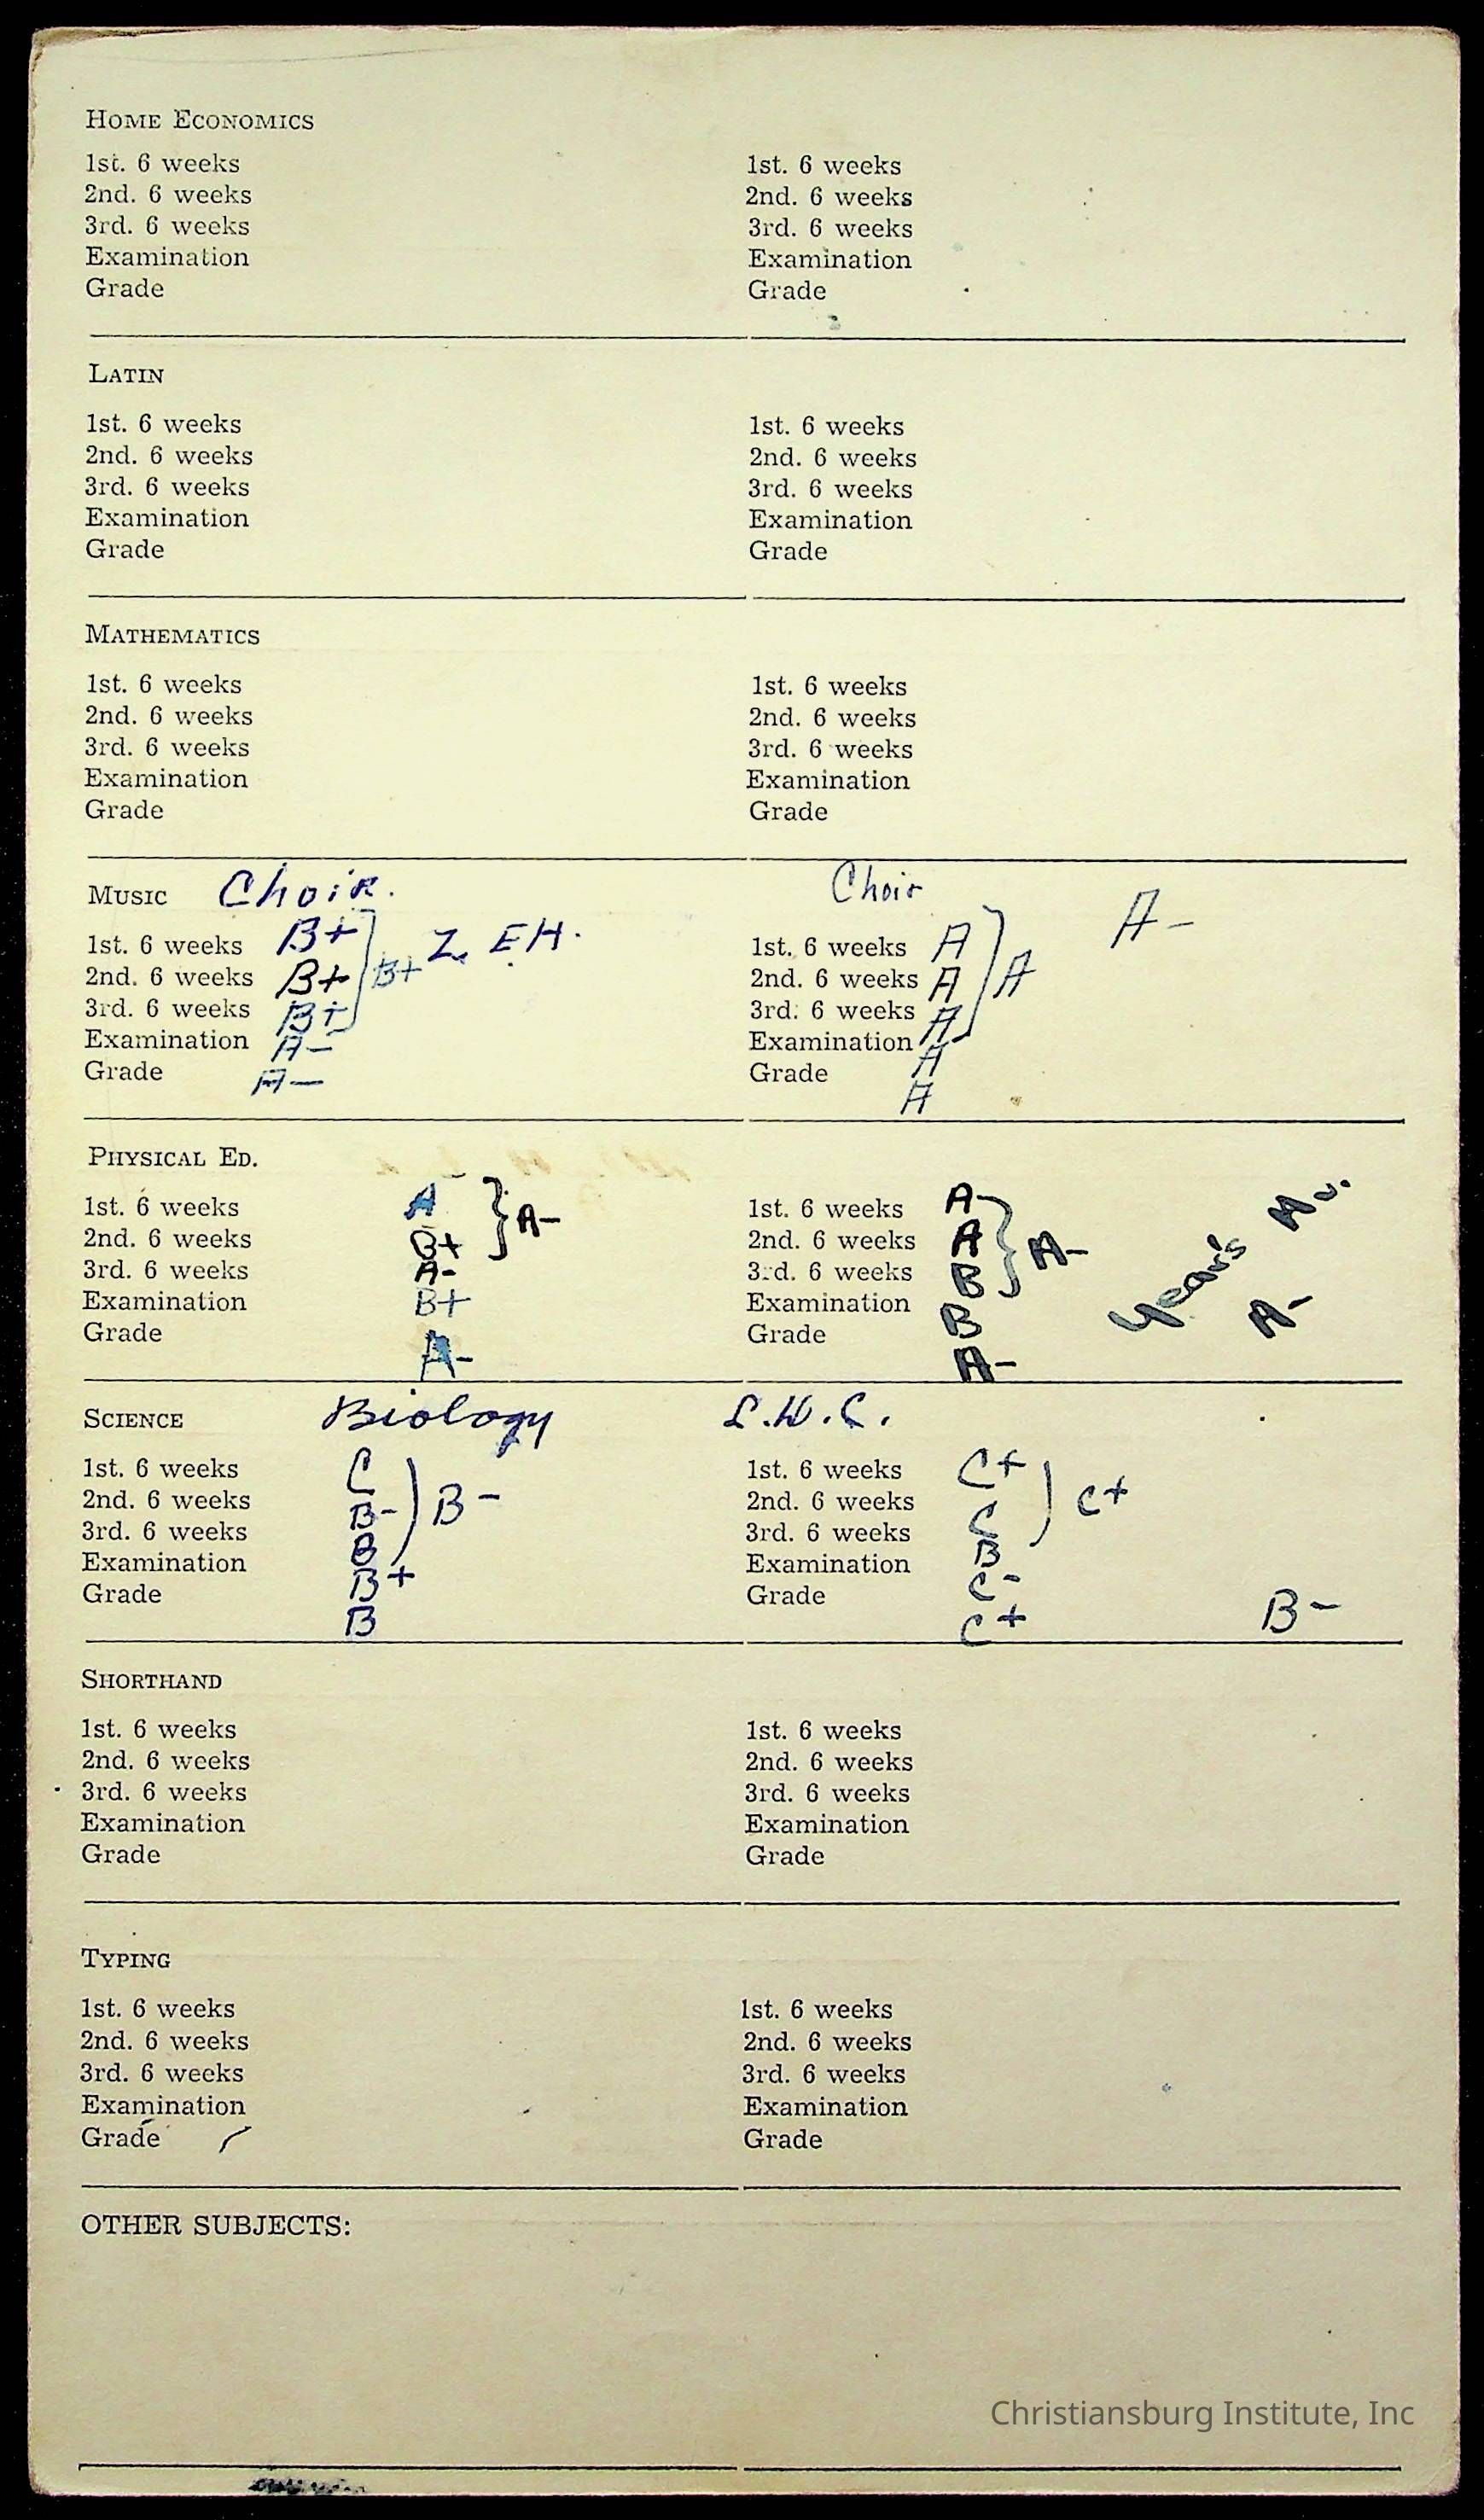 HOME ECONOMICS
1st. 6 weeks 1st. 6 weeks
2nd. 6 weeks 2nd. 6 weeks
3rd. 6 weeks 3rd. 6 weeks
Examination Examination
Grade Grade
LATIN
1st. 6 weeks 1st. 6 weeks
2nd. 6 weeks 2nd. 6 weeks
3rd. 6 weeks 3rd. 6 weeks
Examination Examination
Grade Grade
MATHEMATICS
1st. 6 weeks 1st. 6 weeks
2nd. 6 weeks 2nd. 6 weeks
3rd. 6 weeks 3rd. 6 weeks
Examination Examination
Grade Grade
MUSIC Choir. Choir
1st. 6 weeks B+ Z. EH. 1st. 6 weeks A A-
2nd. 6 weeks B+ B+ 2nd. 6 weeks A A
3rd. 6 weeks B+ 3rd. 6 weeks A
Examination A- Examination A
Grade A- Grade A
PHYSICAL ED.
1st. 6 weeks A- A- 1st. 6 weeks A- Year's Av.
2nd. 6 weeks B+ 2nd. 6 weeks A A-
3rd. 6 weeks A- 3rd. 6 weeks B
Examination B+ Examination B A-
Grade A- Grade A-
SCIENCE Biology L.W.C.
1st. 6 weeks C 1st. 6 weeks C+
2nd. 6 weeks B- B- 2nd. 6 weeks C C+
3rd. 6 weeks B 3rd. 6 weeks B
Examination B+ Examination C-
Grade B Grade C+ B-
SHORTHAND
1st. 6 weeks 1st. 6 weeks
2nd. 6 weeks 2nd. 6 weeks
3rd. 6 weeks 3rd. 6 weeks
Examination Examination
Grade Grade
TYPING
1st. 6 weeks 1st. 6 weeks
2nd. 6 weeks 2nd. 6 weeks
3rd. 6 weeks 3rd. 6 weeks
Examination Examination
Grade Grade
OTHER SUBJECTS:
Christiansburg Institute, Inc